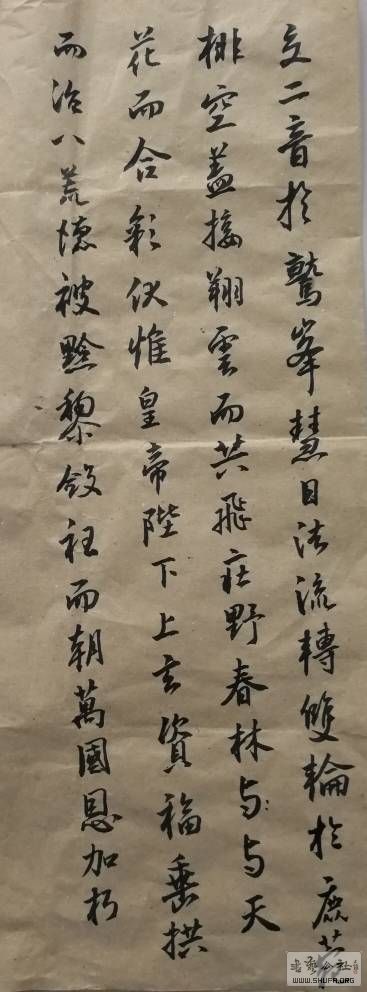 交二音於鷲峯慧日法流轉雙輪於鹿苑
排空盖接翔雲而共飛莊野春林与与天
花而合彩伏惟皇帝陛下上玄資福垂拱
而治八荒德被黔黎斂衽而朝萬國恩加朽
书艺公社
WWW.SHUFA.ORG